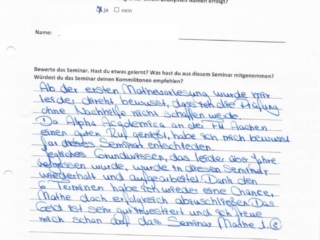 anonymen Namen erfolgt?
ja nein
Name:
Bewerte das Seminar. Hast du etwas gelernt? Was hast du aus diesem Seminar mitgenommen?
Würdest du das Seminar deinen Kommilitonen empfehlen?
Ab der ersten Mathevorlesung wurde mir
leider direkt bewusst, dass ich die Prüfung
ohne Nachhilfe nicht schaffen werde.
Da Alpha Academica an der FH Aachen
einen guten Ruf genießt, habe ich mich bewusst
für dieses Seminar entschieden.
Jegliches Grundwissen, das leider über Jahre
vergessen wurde, wurde in diesem Seminar
wiederholt und aufgearbeitet. Dank den
6 Terminen habe ich wieder eine Chance
Mathe doch erfolgreich abzuschließen. Das
Geld ist sehr gut investiert und ich freue
mich schon auf das Seminar (Mathe 1.